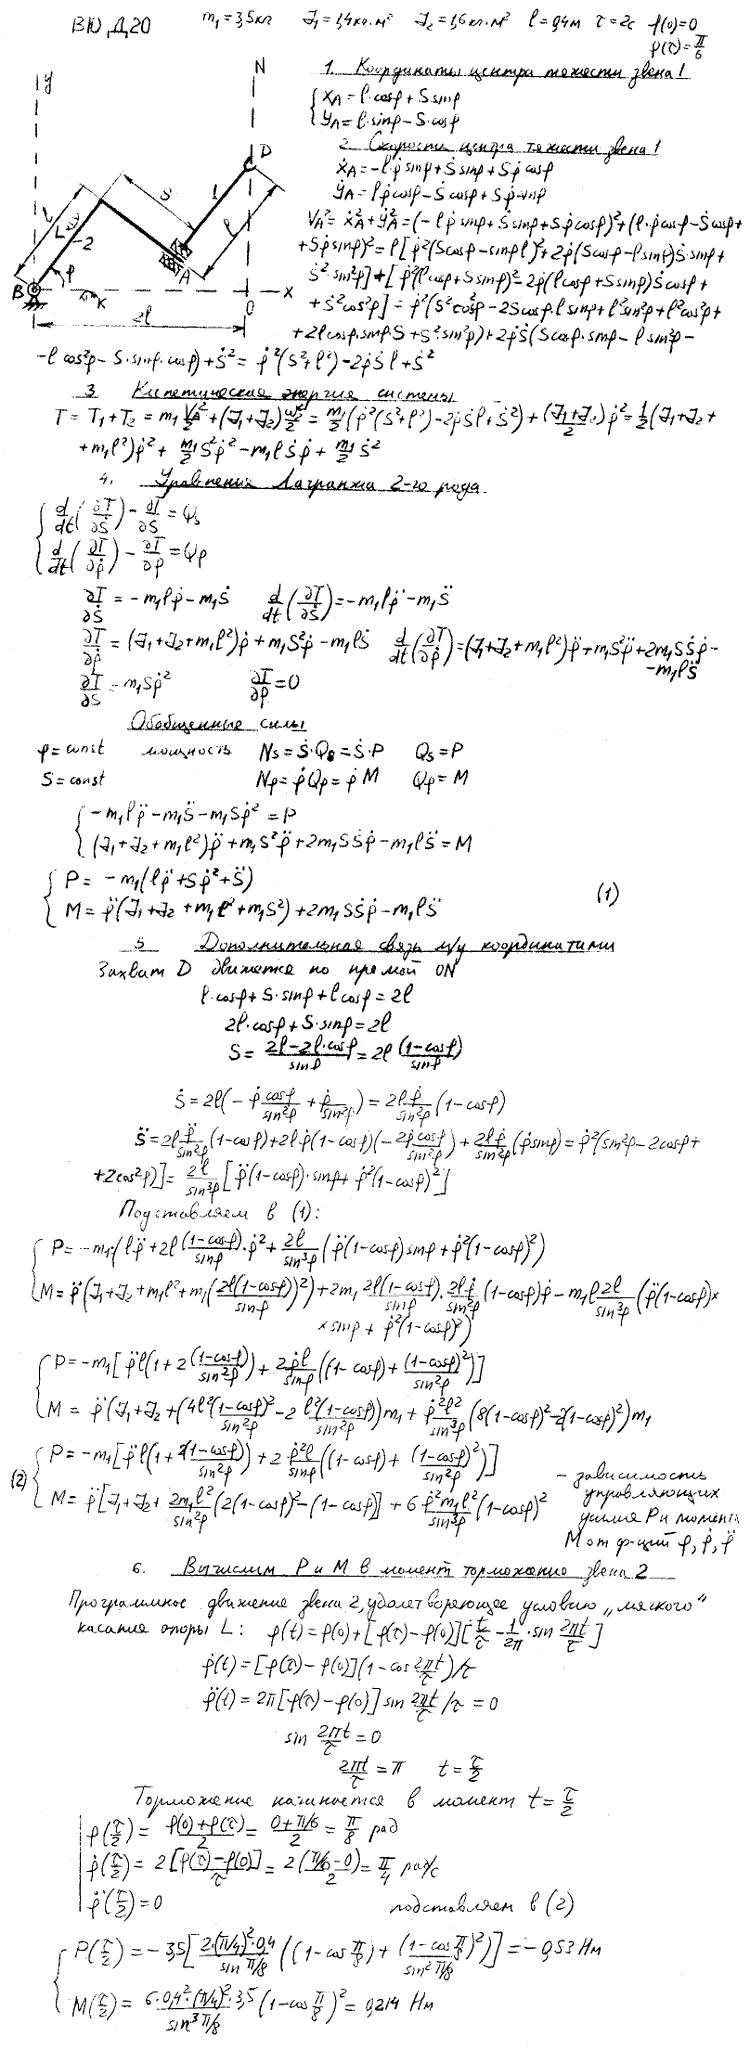 ВЮ, Д20   m₁ = 3,5 кг   J₁ = 1,4 кг·м²   J₂ = 1,6 кг·м²   l = 0,4 м   τ = 2с   φ(0) = 0
φ(τ) = π/6
y   N   D   l   S   1   L   2   l   A   φ   B   K   0   x   2l
1. Координаты центра тяжести звена 1
{ x_A = l·cosφ + S sinφ
{ y_A = l·sinφ − S·cosφ
2. Скорости центра тяжести звена 1
ẋ_A = −l·φ̇ sinφ + Ṡ sinφ + Sφ̇ cosφ
ẏ_A = lφ̇ cosφ − Ṡ cosφ + Sφ̇ sinφ
V_A² = ẋ_A² + ẏ_A² = (−lφ̇ sinφ + Ṡ sinφ + Sφ̇ cosφ)² + (l·φ̇ cosφ − Ṡ cosφ +
+ Sφ̇ sinφ)² = l[φ̇²(S cosφ − sinφ l)² + 2φ̇(S cosφ − l sinφ)Ṡ·sinφ +
Ṡ²·sin²φ] + [φ̇²(l cosφ + S sinφ)² − 2φ̇(l cosφ + S sinφ)Ṡ cosφ +
+ Ṡ² cos²φ] = φ̇²(S² cos²φ − 2S cosφ l sinφ + l² sin²φ + l² cos²φ +
+ 2l cosφ sinφ S + S² sin²φ) + 2φ̇Ṡ(S cosφ·sinφ − l sin²φ −
− l cos²φ − S·sinφ·cosφ) + Ṡ² = φ̇²(S² + l²) − 2φ̇Ṡl + Ṡ²
3 Кинетическая энергия системы
T = T₁ + T₂ = m₁ V_A²/2 + (J₁ + J₂) ω²/2 = m₁/2 (φ̇²(S² + l²) − 2φ̇Ṡl + Ṡ²) + (J₁ + J₂)/2 φ̇² = 1/2 (J₁ + J₂ +
+ m₁l²)φ̇² + m₁/2 S²φ̇² − m₁lṠφ̇ + m₁/2 Ṡ²
4. Уравнения Лагранжа 2-го рода
{ d/dt(∂T/∂Ṡ) − ∂T/∂S = Q_s
{ d/dt(∂T/∂φ̇) − ∂T/∂φ = Qφ
∂T/∂Ṡ = −m₁lφ̇ − m₁Ṡ   d/dt(∂T/∂Ṡ) = −m₁lφ̈ − m₁S̈
∂T/∂φ̇ = (J₁ + J₂ + m₁l²)φ̇ + m₁S²φ̇ − m₁lṠ   d/dt(∂T/∂φ̇) = (J₁ + J₂ + m₁l²)φ̈ + m₁S²φ̈ + 2m₁SṠφ̇ −
− m₁lS̈
∂T/∂S = m₁Sφ̇²   ∂T/∂φ = 0
Обобщенные силы
φ = const   мощность   N_s = Ṡ·Q_s = Ṡ·P   Q_s = P
S = const   Nφ = φ̇Qφ = φ̇M   Qφ = M
{ −m₁lφ̈ − m₁S̈ − m₁Sφ̇² = P
{ (J₁ + J₂ + m₁l²)φ̈ + m₁S²φ̈ + 2m₁SṠφ̇ − m₁lS̈ = M
{ P = −m₁(lφ̈ + Sφ̇² + S̈)   (1)
{ M = φ̈(J₁ + J₂ + m₁l² + m₁S²) + 2m₁SṠφ̇ − m₁lS̈
5 Дополнительная связь м/у координатами
Захват D движется по прямой ON
l·cosφ + S·sinφ + l cosφ = 2l
2l·cosφ + S·sinφ = 2l
S = (2l − 2l·cosφ)/sinφ = 2l (1−cosφ)/sinφ
Ṡ = 2l(−φ̇ cosφ/sin²φ + φ̇/sin²φ) = 2l φ̇/sin²φ (1−cosφ)
S̈ = 2l φ̈/sin²φ (1−cosφ) + 2lφ̇(1−cosφ)(−2φ̇cosφ/sin³φ) + 2lφ̇/sin²φ (φ̇sinφ) = φ̇²(sin²φ − 2cosφ +
+ 2cos²φ)] = 2l/sin³φ [φ̈(1−cosφ)·sinφ + φ̇²(1−cosφ)²]
Подставляем в (1):
{ P = −m₁(lφ̈ + 2l (1−cosφ)/sinφ · φ̇² + 2l/sin³φ (φ̈(1−cosφ) sinφ + φ̇²(1−cosφ)²)
{ M = φ̈(J₁ + J₂ + m₁l² + m₁(2l(1−cosφ)/sinφ)²) + 2m₁ 2l(1−cosφ)/sinφ · 2lφ̇/sin²φ (1−cosφ)φ̇ − m₁l 2l/sin³φ (φ̈(1−cosφ)×
× sinφ + φ̇²(1−cosφ)²)
{ P = −m₁[φ̈l(1 + 2 (1−cosφ)/sin²φ) + 2φ̇l/sinφ ((1−cosφ) + (1−cosφ)²/sin²φ)]
{ M = φ̈(J₁ + J₂ + (4l²(1−cosφ)²/sin²φ − 2 l²(1−cosφ)/sin²φ)m₁ + φ̇²l²/sin³φ (8(1−cosφ)² − 2(1−cosφ)²)m₁
(2) { P = −m₁[φ̈l(1 + 2(1−cosφ)/sin²φ) + 2 φ̇²l/sinφ ((1−cosφ) + (1−cosφ)²/sin²φ)]
{ M = φ̈[J₁ + J₂ + 2m₁l²/sin²φ (2(1−cosφ)² − (1−cosφ)] + 6 φ̇²m₁l²/sin³φ (1−cosφ)²
- зависимость
управляющих
усилия P и момента
M от ф-ций φ, φ̇, φ̈
6. Вычислим P и M в момент торможение звена 2
Программное движение звена 2, удовлетворяющее условию „мягкого"
касание опоры L: φ(t) = φ(0) + [φ(τ) − φ(0)][t/τ − 1/2π · sin 2πt/τ]
φ̇(t) = [φ(τ) − φ(0)](1 − cos 2πt/τ)/τ
φ̈(t) = 2π[φ(τ) − φ(0)] sin 2πt/τ /τ = 0
sin 2πt/τ = 0
2πt/τ = π   t = τ/2
Торможение начинается в момент t = τ/2
φ(τ/2) = (φ(0) + φ(τ))/2 = (0 + π/6)/2 = π/8 рад
φ̇(τ/2) = 2[φ(τ) − φ(0)]/τ = 2(π/6 − 0)/2 = π/4 рад/с
φ̈(τ/2) = 0   подставляем в (2)
{ P(τ/2) = −3,5[2·(π/4)²·0,4/sin π/8 ((1 − cos π/8) + (1 − cos π/8)²/sin² π/8)] = −0,53 Нм
{ M(τ/2) = 6·0,4²·(π/4)²·3,5/sin³ π/8 (1 − cos π/8)² = 0,214 Нм